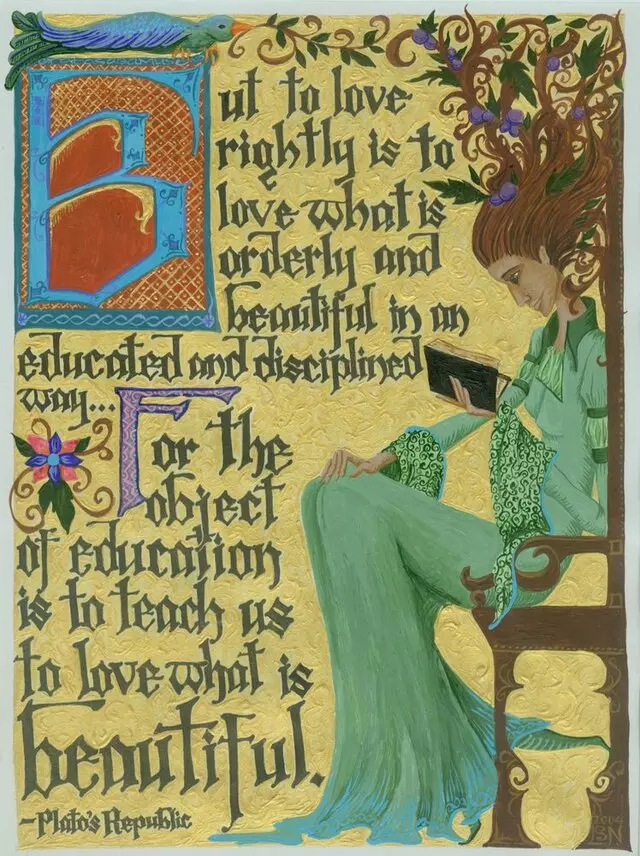 But to love
rightly is to
love what is
orderly and
beautiful in an
educated and disciplined
way...
For the
object
of education
is to teach us
to love what is
beautiful.
-Plato's Republic
2004
BN